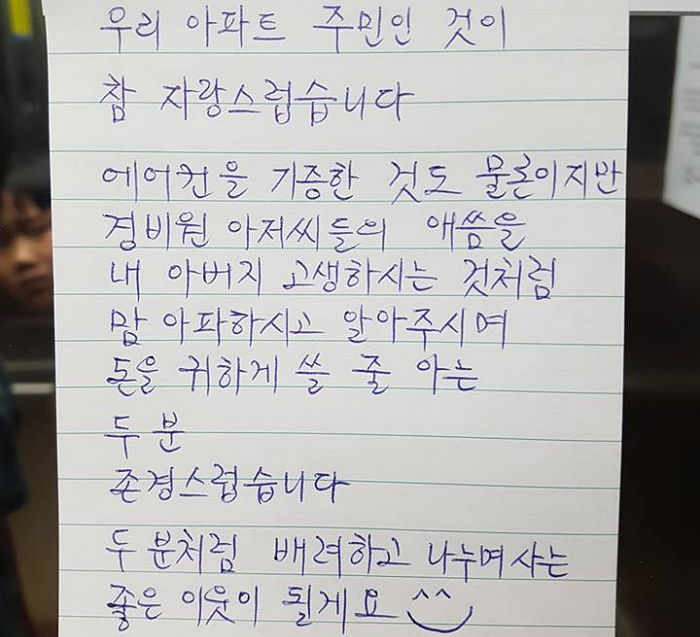 우리 아파트 주민인 것이
참 자랑스럽습니다
에어컨을 기증한 것도 물론이지만
경비원 아저씨들의 애씀을
내 아버지 고생하시는 것처럼
맘 아파하시고 알아주시며
돈을 귀하게 쓸 줄 아는
두 분
존경스럽습니다
두 분처럼 배려하고 나누며 사는
좋은 이웃이 될게요 ^^